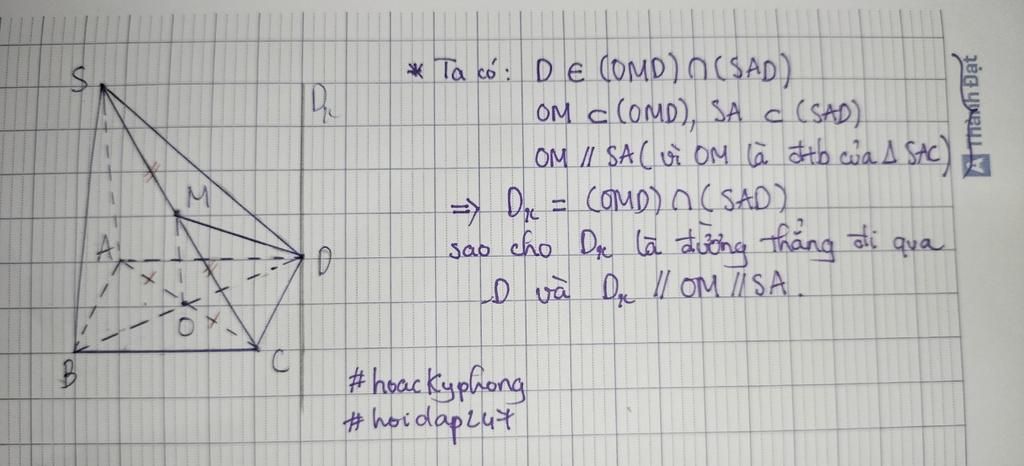 * Ta có: D ∈ (OMD) ∩ (SAD)
OM ⊂ (OMD), SA ⊂ (SAD)
OM // SA (vì OM là đtb của Δ SAC)
⇒ Dx = (OMD) ∩ (SAD)
sao cho Dx là đường thẳng đi qua
D và Dx // OM // SA.
#hoackyphong
#hoidap247
S
Dx
M
A
D
O
B
C
Thành Đạt